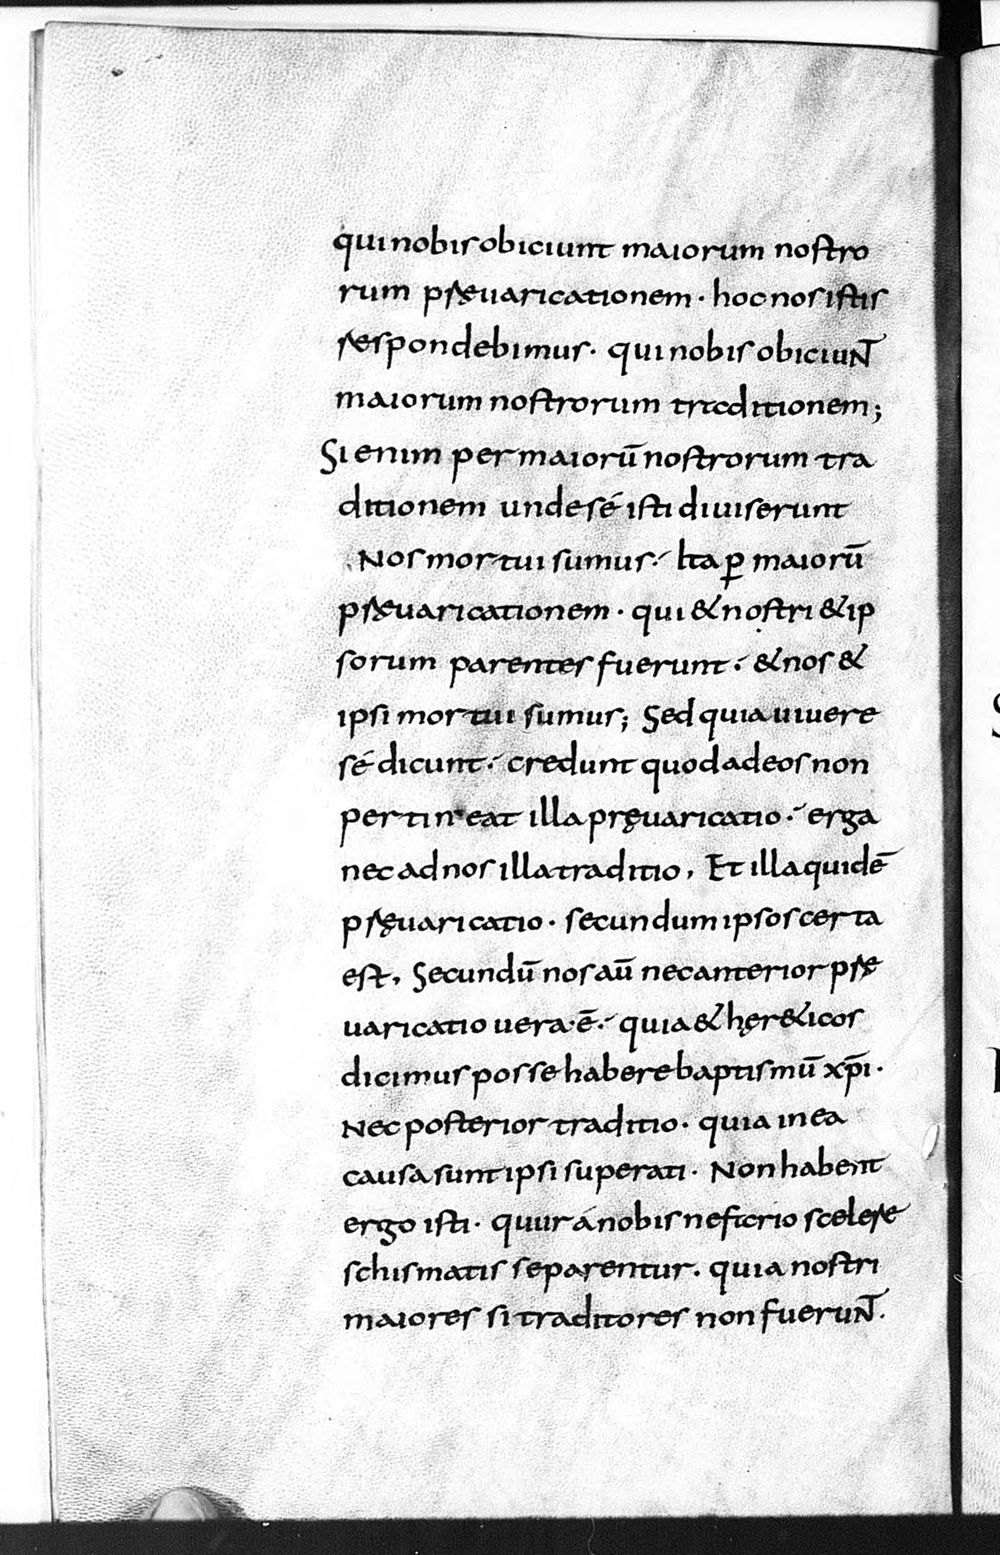 qui nobis obiciunt maiorum nostro
rum pręuaricationem · hoc nos istis
respondebimus · qui nobis obiciuNT
maiorum nostrorum traditionem;
Si enim per maiorū nostrorum tra
ditionem unde sé isti diuiserunt
Nos mortui sumus·́ Ita ꝑ maiorū
pręuaricationem · qui & nostri & ip
sorum parentes fuerunt·́ & nos &
ipsi mortui sumus; Sed quia uiuere
sé dicunt·́ credunt quod ad eos non
pertineat illa pręuaricatio·́ erga
nec ad nos illa traditio, Et illa quidē
pręuaricatio · secundum ipsos certa
est, Secundū nos aū nec anterior prę
uaricatio uera·ē·́ quia & hęr&icos
dicimus posse habere baptismū xp̄i ·
Nec posterior traditio · quia in ea
causa sunt ipsi superati · Non habent
ergo isti · quur á nobis nefario scelere
schismatis separentur. quia nostri
maiores si traditores non fueruNT.